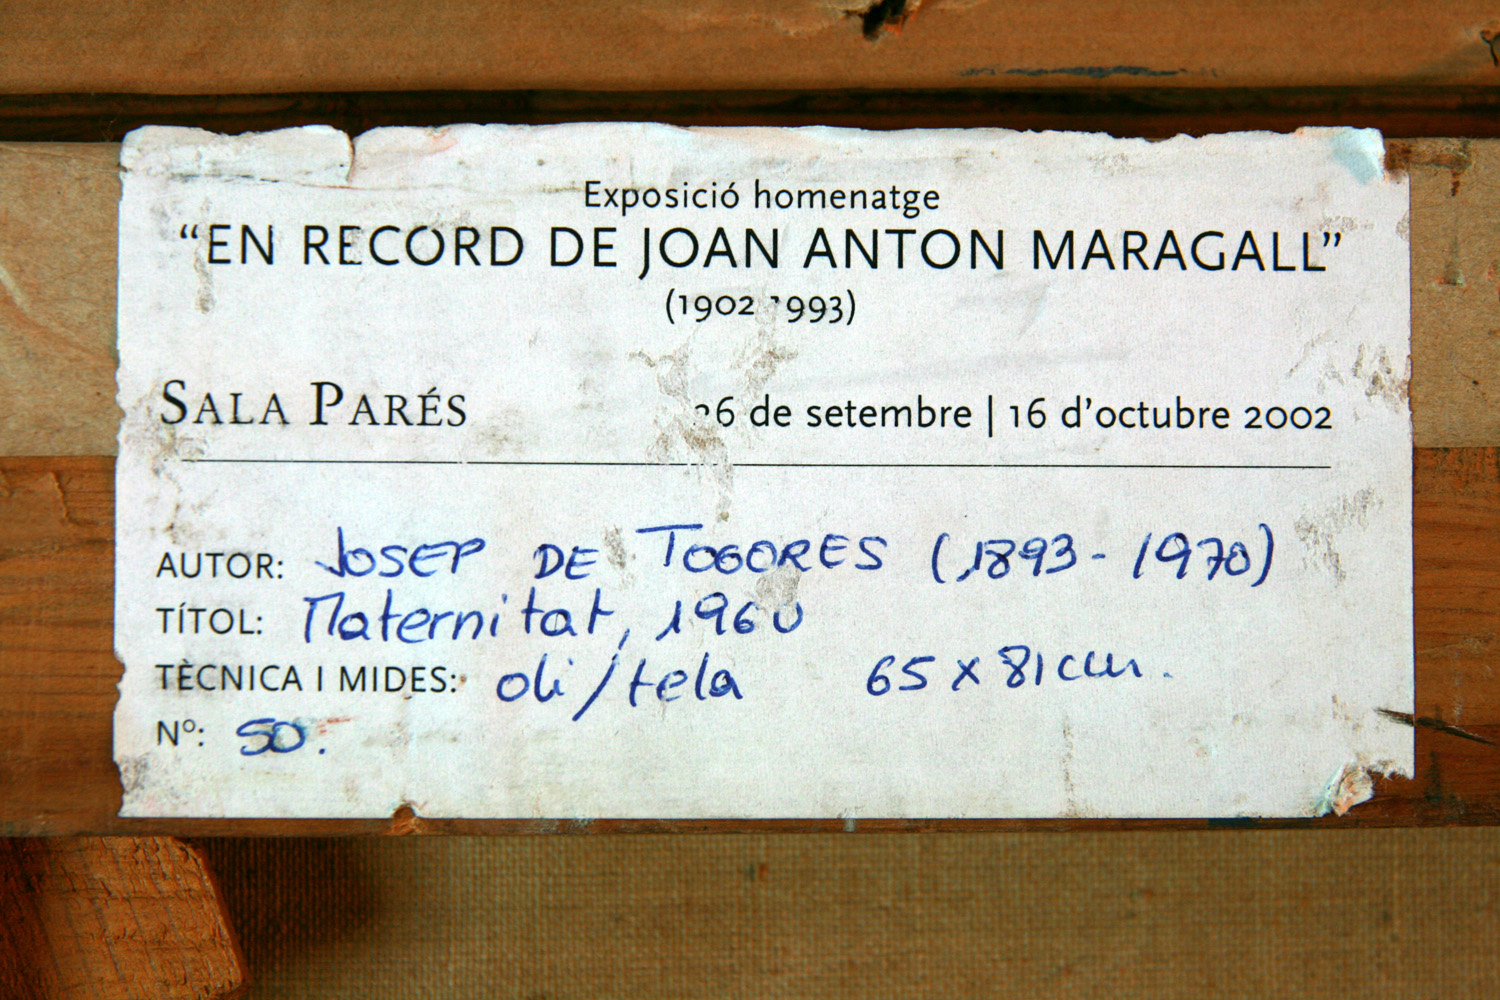 Exposició homenatge
“EN RECORD DE JOAN ANTON MARAGALL”
(1902-1993)
SALA PARÉS
26 de setembre | 16 d’octubre 2002
AUTOR: JOSEP DE TOGORES (1893-1970)
TÍTOL: Maternitat, 1960
TÈCNICA I MIDES: oli/tela 65 x 81 cm.
Nº: 50.